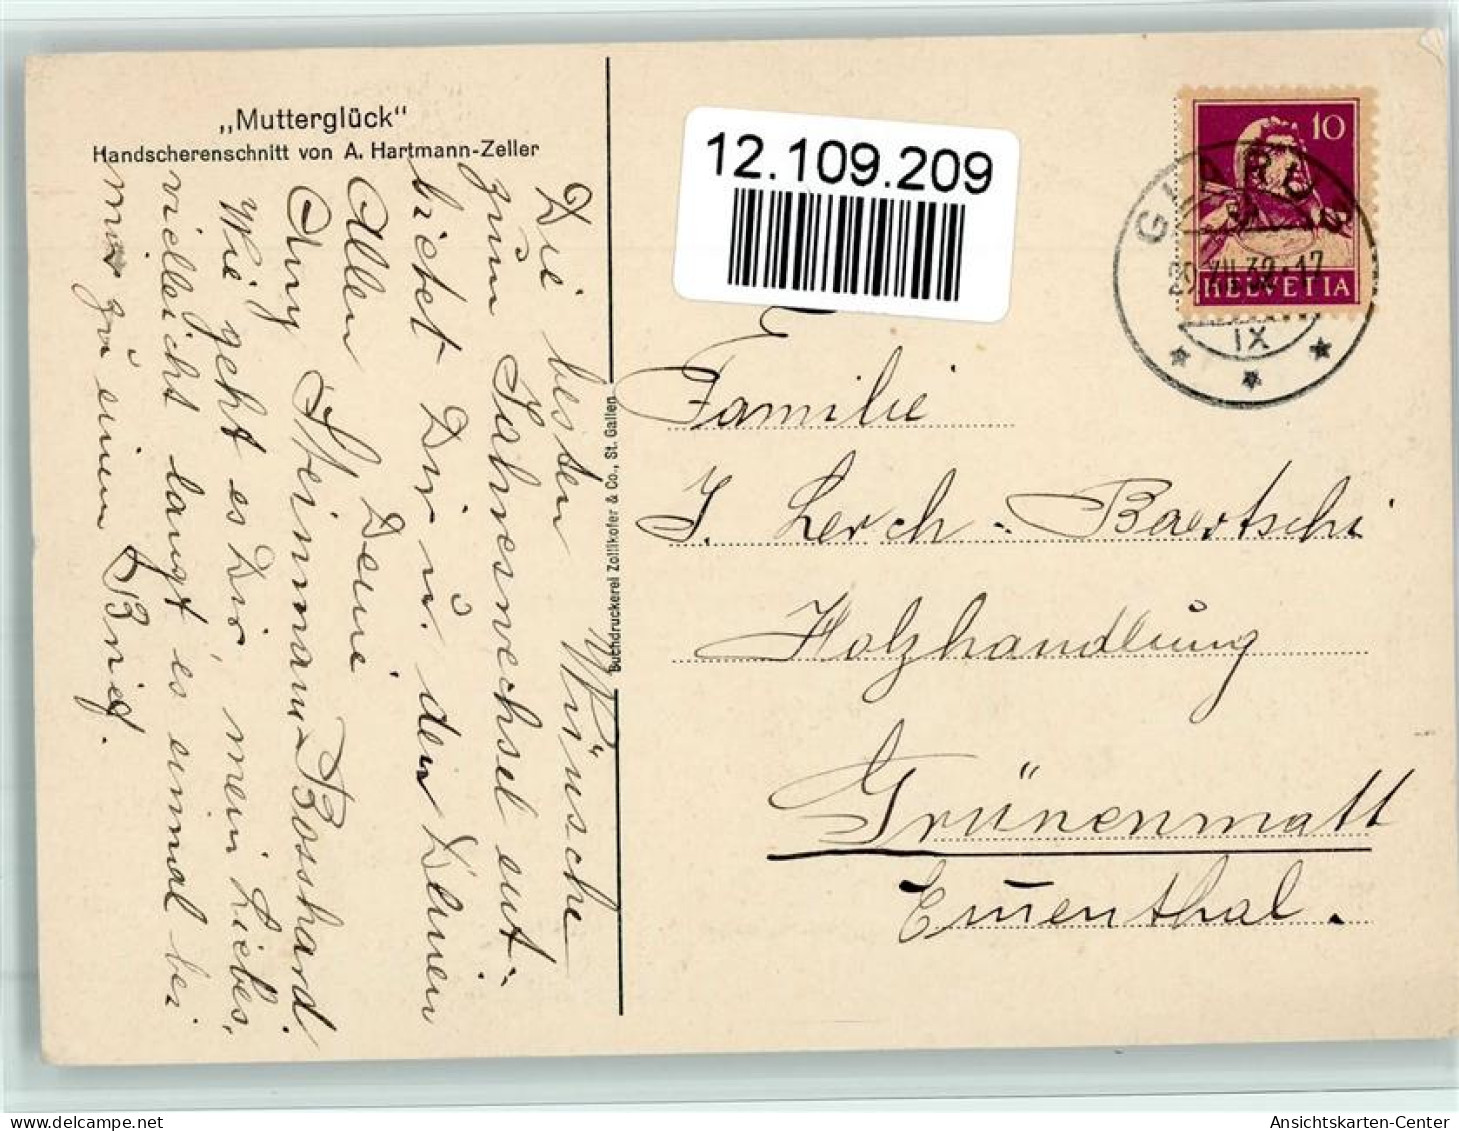 „Mutterglück“
Handscherenschnitt von A. Hartmann-Zeller
Die besten Wünsche
zum Jahreswechsel ent-
bietet Dir u. den Deinen
Allen Deine
Anny Steinmann-Bosshard.
Wie geht es Dir, mein Liebes,
vielleicht langt es einmal bei
mir zu einem Brief.
Buchdruckerei Zollikofer & Co., St. Gallen
12.109.209
10
HELVETIA
GLARUS
IX
Familie
J. Lerch-Baertschi
Holzhandlung
Grünenmatt
Emmenthal.
Ansichtskarten-Center